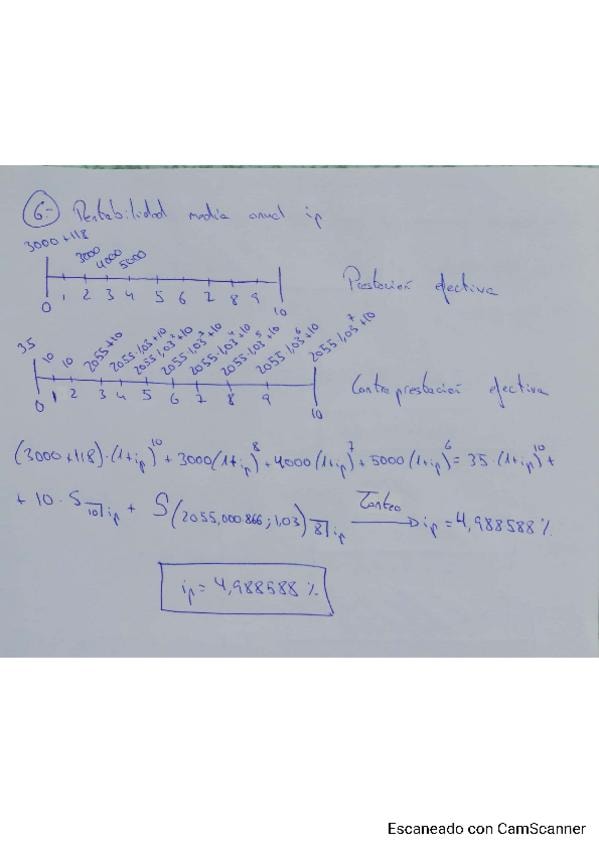 6- Rentabilidad media anual ip
3000+118
3000
4000
5000
0 1 2 3 4 5 6 7 8 9 10
Prestación efectiva
35
10
10
2055+10
2055·1,03+10
2055·1,03²+10
2055·1,03³+10
2055·1,03⁴+10
2055·1,03⁵+10
2055·1,03⁶+10
2055·1,03⁷+10
0 1 2 3 4 5 6 7 8 9 10
Contraprestación efectiva
(3000+118)·(1+ip)¹⁰ + 3000(1+ip)⁸ + 4000(1+ip)⁷ + 5000(1+ip)⁶ = 35·(1+ip)¹⁰ +
+ 10 · S10┐ip + S(2055,000866; 1,03)8┐ip Tanteo → ip = 4,988588 %
ip = 4,988588 %
Escaneado con CamScanner